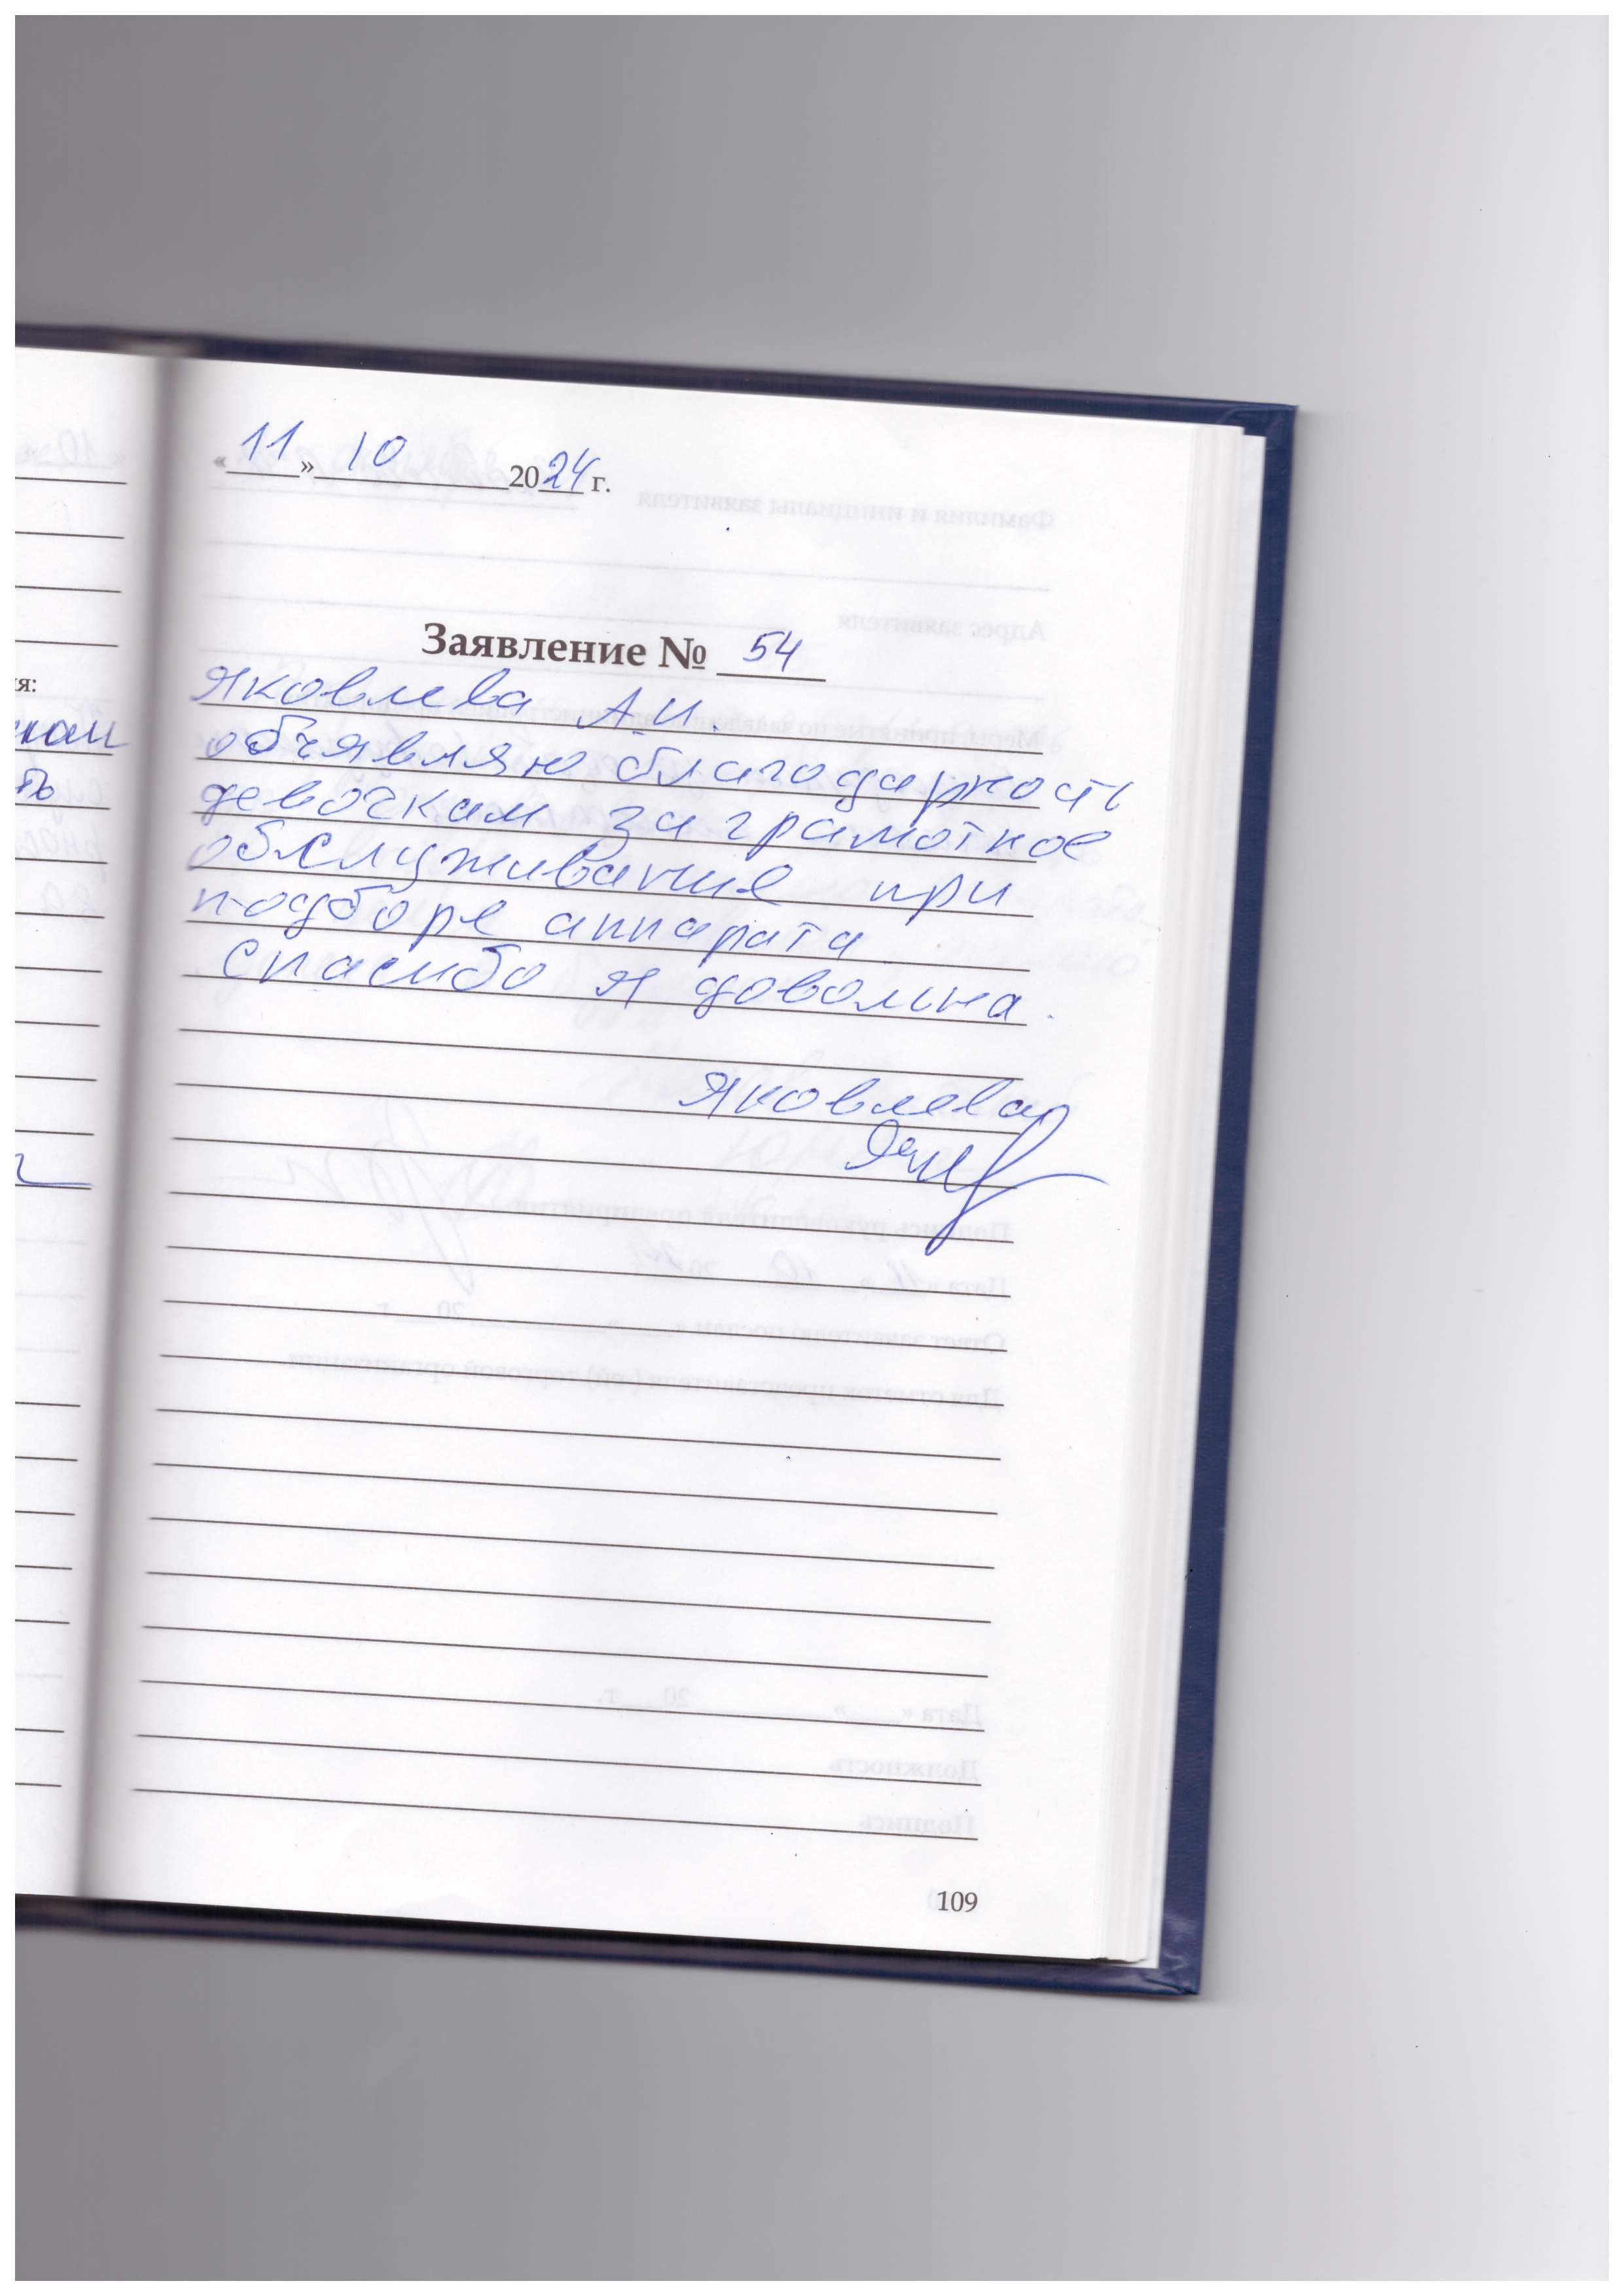 «11» 10 2024 г.
Заявление № 54
Яковлева А.И.
объявляю благодарность
девочкам за грамотное
обслуживание при
подборе аппарата
спасибо я довольна.
Яковлева
109
я: